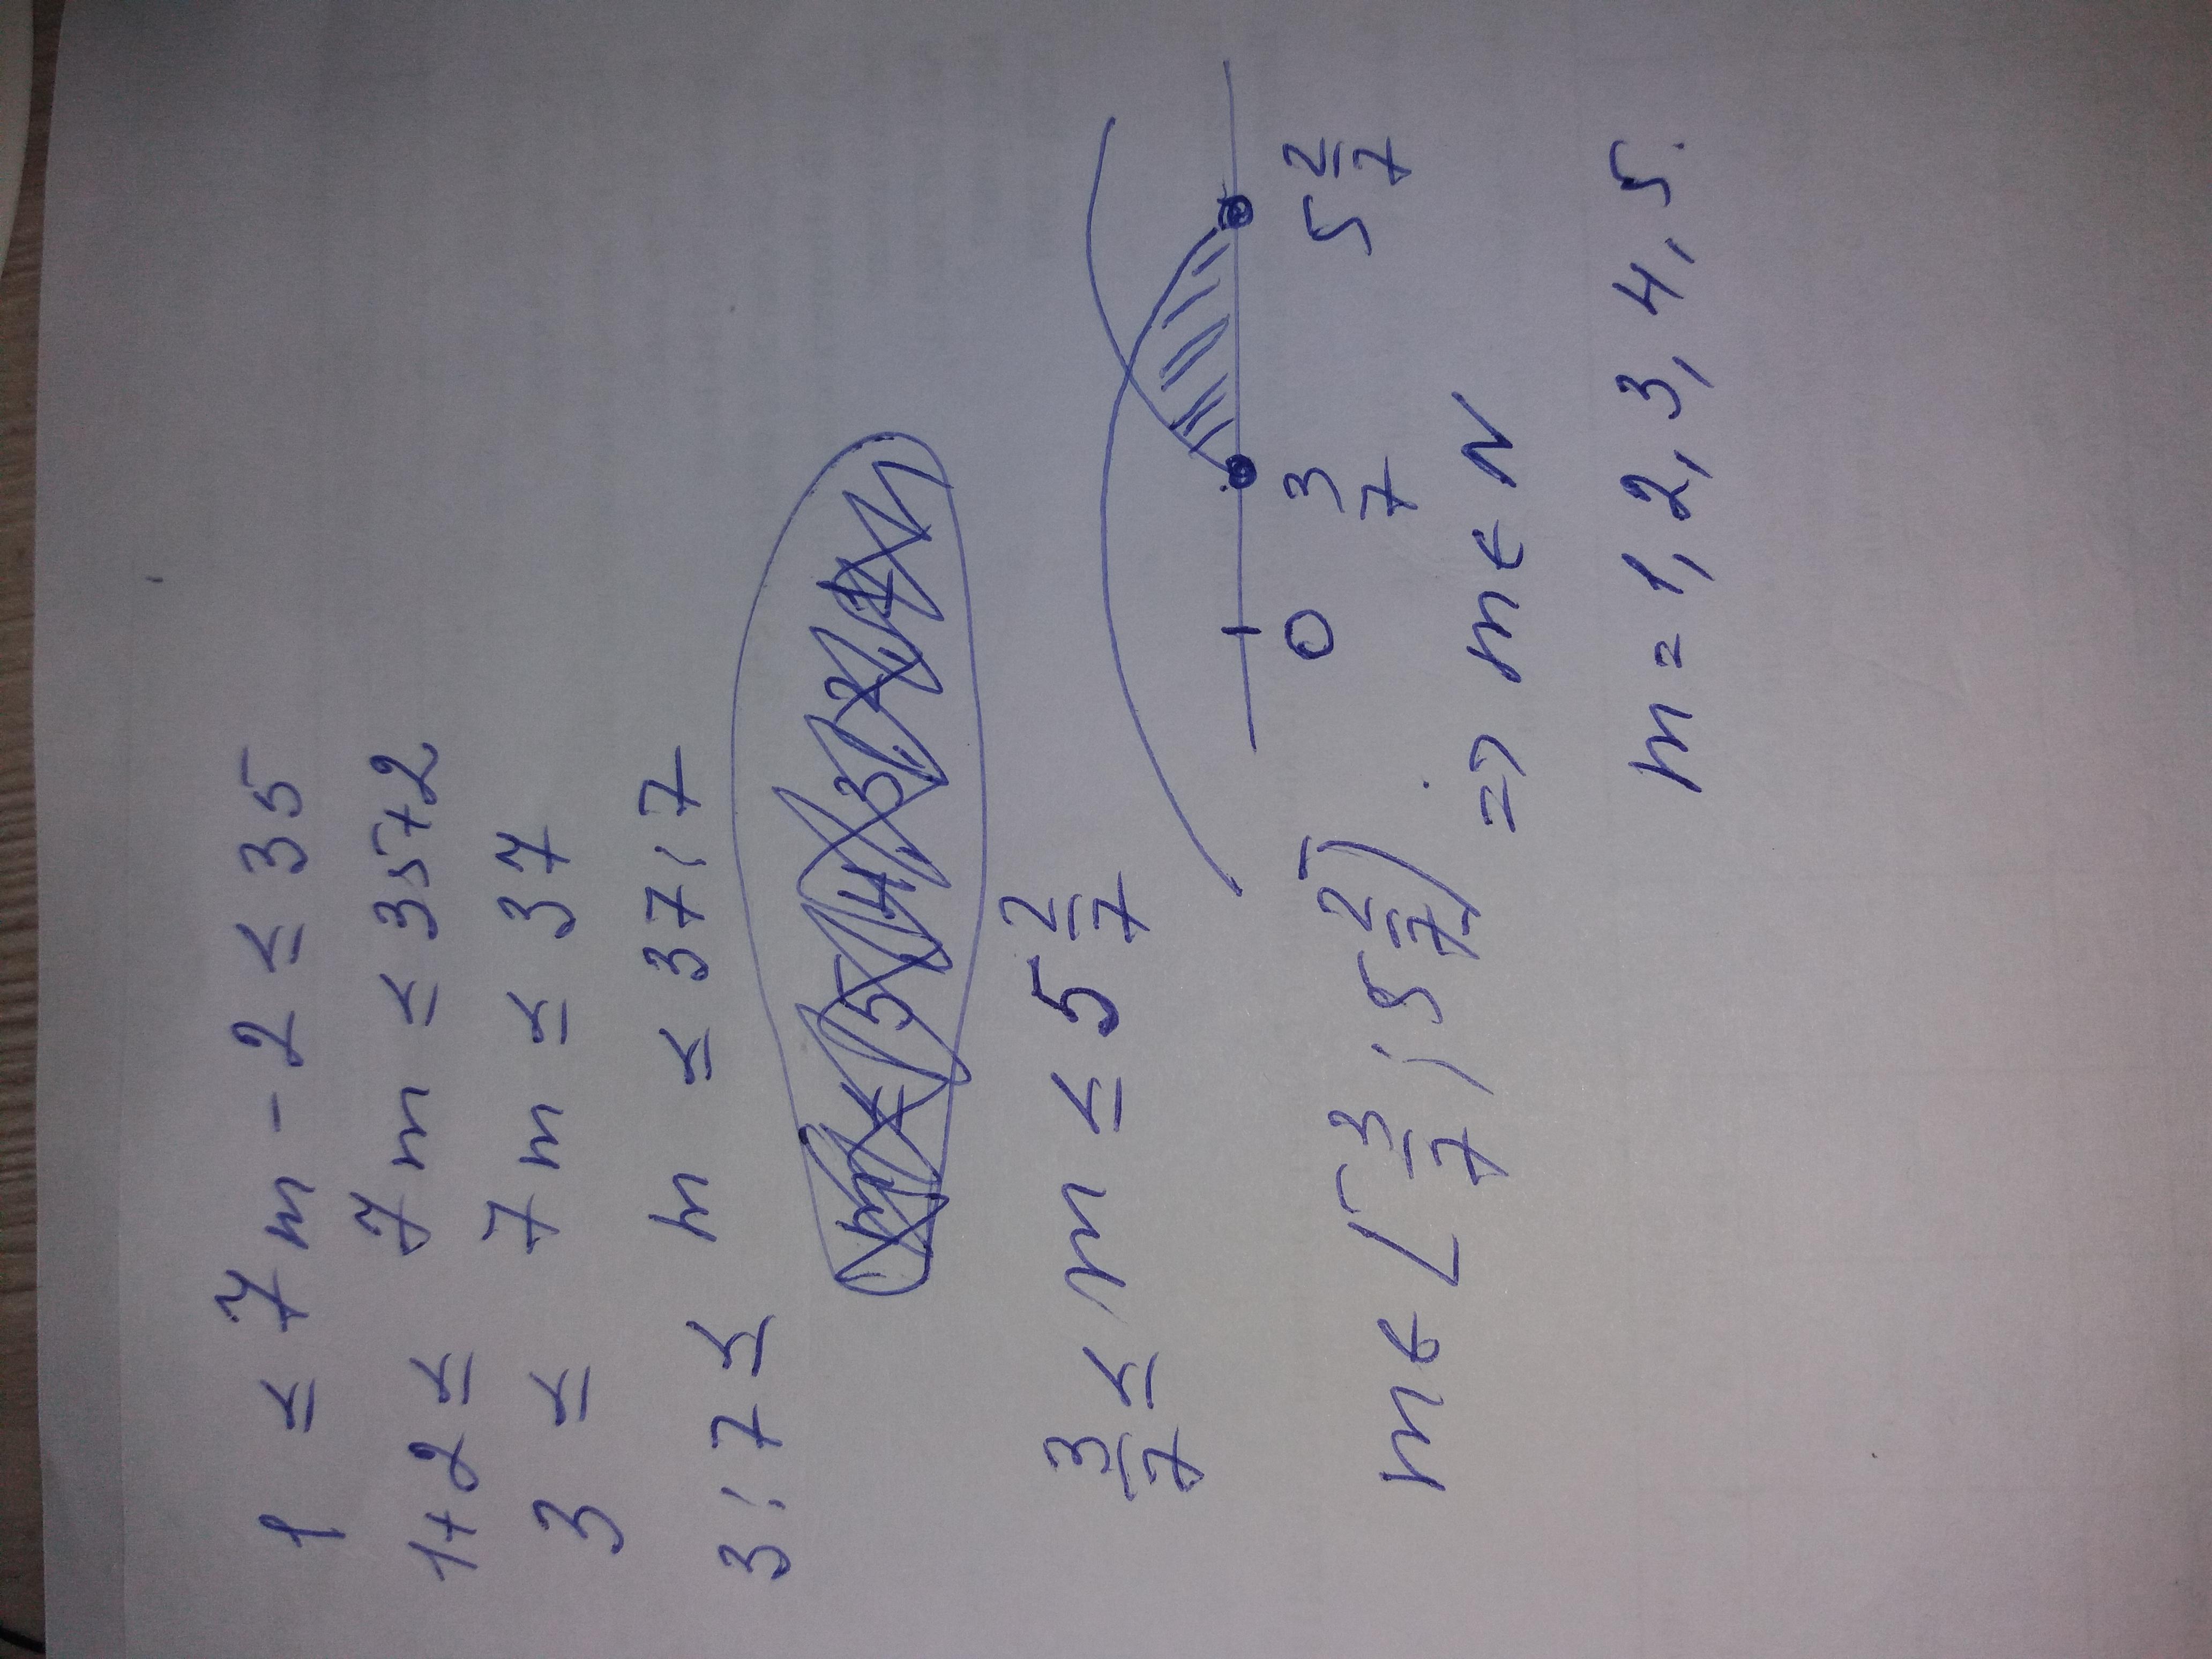 1 ≤ 7m - 2 ≤ 35
1+2 ≤ 7m ≤ 35+2
3 ≤ 7m ≤ 37
3:7 ≤ m ≤ 37:7
m ≤ 5 4 3 2 1
3/7 ≤ m ≤ 5 2/7
0 3/7 5 2/7
m ∈ [3/7; 5 2/7] => m ∈ N
m = 1, 2, 3, 4, 5.